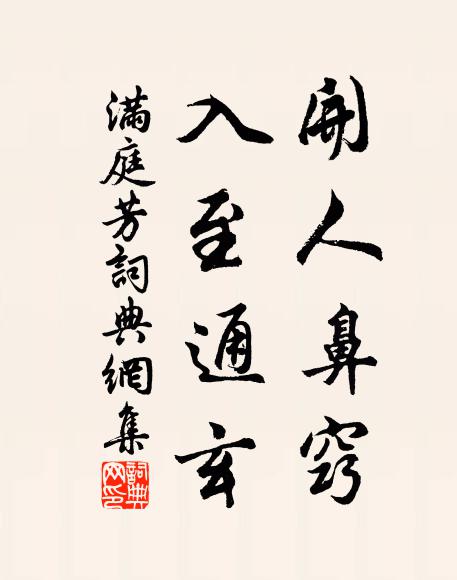 開人鼻竅
入至通玄
滿庭芳詞典網集
詞典
网印